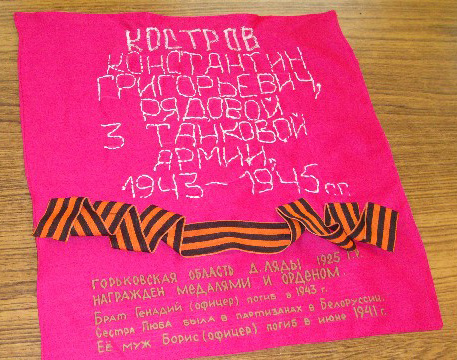 КОСТРОВ
КОНСТАНТИН
ГРИГОРЬЕВИЧ,
РЯДОВОЙ
3 ТАНКОВОЙ
АРМИИ.
1943-1945 г.г.
ГОРЬКОВСКАЯ ОБЛАСТЬ Д. ЛЯДЫ 1925 г.р.
НАГРАЖДЕН МЕДАЛЯМИ И ОРДЕНОМ
Брат Генадий (офицер) погиб в 1943 г.
Сестра Люба была в партизанах в Белоруссии.
Её муж Борис (офицер) погиб в июне 1941 г.